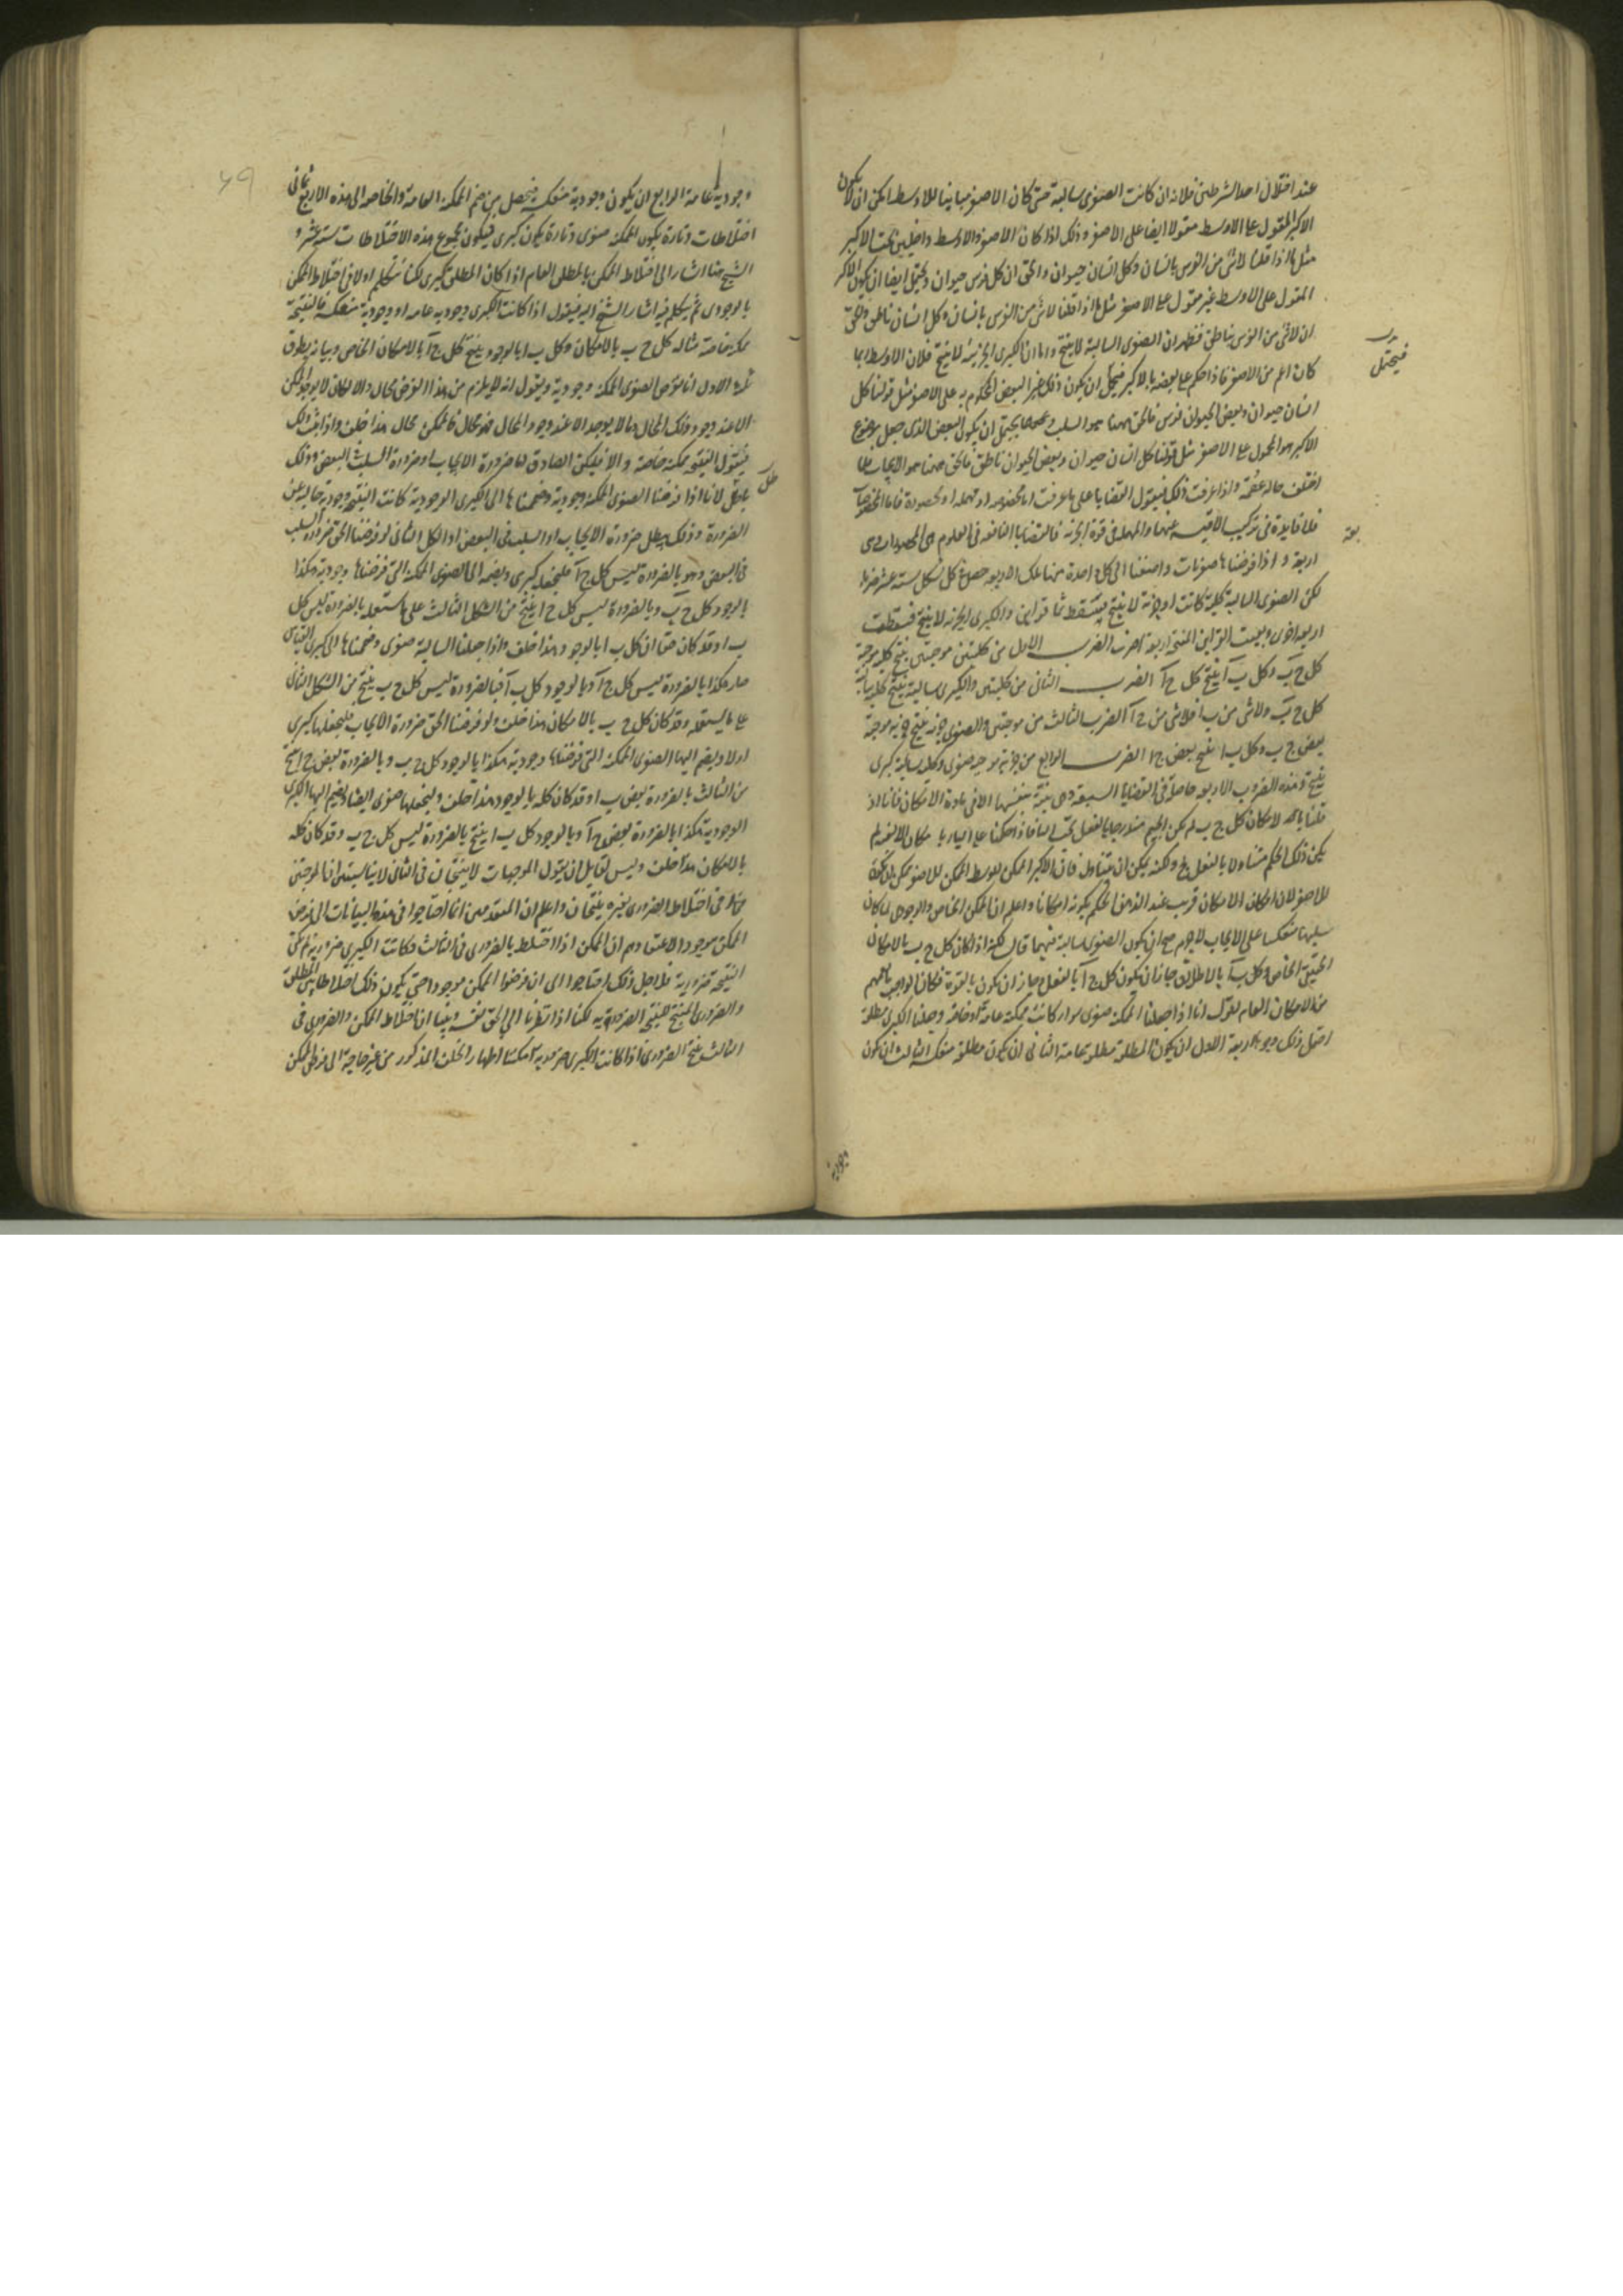 عند اختلال احد الشرطين فلانه ان كانت الصغرى سالبة حتى كان الاصغر مباينا للاوسط امكن ان لا يكون
الاكبر المقول على الاوسط مقولا ايضا على الاصغر وذلك اذا كان الاصغر والاوسط داخلين تحت الاكبر
مثل ما اذا قلنا لا شئ من الفرس بانسان وكل انسان حيوان والحق ان كل فرس حيوان ويحتمل ايضا ان يكون الاكبر
المقول على الاوسط غير مقول على الاصغر مثل ما اذا قلنا لا شئ من الفرس بانسان وكل انسان ناطق والحق
ان لا شئ من الفرس بناطق فظهر ان الصغرى السالبة لا ينتج واما ان الكبرى الجزئية لا ينتج فلان الاوسط
كان اعم من الاصغر فاذا حكم على بعضه بالاكبر فيحتمل ان يكون ذلك غير البعض المحكوم به على الاصغر مثل قولنا كل
فيحتمل
انسان حيوان وبعض الحيوان فرس فالحق ههنا هو السلب يحتمل ان يكون البعض الذى جعل موضوع
الاكبر هو المحمول على الاصغر مثل قولنا كل انسان حيوان وبعض الحيوان ناطق فالحق ههنا هو الايجاب
واذا عرفت ذلك فنقول القضايا على ما عرفت اما مخصوصة او مهملة او محصورة فاما المخصوصات
فلا فايدة فى تركيب الاقيسة عنها والمهملة فى قوة الجزئية فالقضايا النافعة فى العلوم هى المحصورات وهى
اربعة واذا فرضناها صغريات واضفنا الى كل واحدة منها تلك الاربعة حصل فى كل شكل ستة عشر ضربا
لكن الصغرى السالبة كلية كانت او جزئية لا ينتج فسقط ثمانية قراين والكبرى الجزئية لا ينتج فسقطت
اربعة اخرى وبقيت القراين المنتجة اربعة اضرب الضرب الاول من كليتين موجبتين ينتج كلية موجبة
كل ج ب وكل ب آ ينتج كل ج آ الضرب الثانى من كليتين والكبرى سالبة ينتج كلية سالبة
كل ج ب ولا شئ من ب ا فلا شئ من ج آ الضرب الثالث من موجبتين والصغرى جزئية ينتج جزئية موجبة
بعض ج ب وكل ب ا ينتج بعض ج ا الضرب الرابع من جزئية موجبة صغرى وكلية سالبة كبرى
ينتج وهذه الضروب الاربعة حاصلة فى القضايا السبعة وهى بينة بنفسها الا فى مادة الامكان فانا اذا
قلنا بالامكان كل ج ب لم يكن الجيم مندرجا بالفعل تحت الباء فاذا حكمنا على الباء بامكان الالف لم
يكن ذلك الحكم متناولا بالفعل ج ولكنه يمكن ان يتناوله فان الاكبر الممكن للاوسط الممكن للاصغر ممكن
للاصغر لان امكان الامكان قريب عند الذهن الحكم بكونه امكانا واعلم ان الممكن الخاص والوجودى لما كان
سلبهما منعكسا على الايجاب لا جرم صح ان يكون الصغرى سالبة فيهما قال لكنه اذا كان كل ج ب بالامكان
الحقيقى الخاص وكل ب آ بالاطلاق جاز ان يكون كل ج آ بالفعل وجاز ان يكون بالقوة فكان الواجب ما يعمهما
من الامكان العام نقول انا اذا جعلنا الممكنة صغرى سواء كانت ممكنة عامة او خاصة وجعلنا الكبرى مطلقة
احتمل ذلك وجوها اربعة الاول ان يكون المطلقة مطلقة عامة الثانى ان يكون مطلقة منعكسة الثالث ان يكون
وجودية عامة الرابع ان يكون وجودية منعكسة فيحصل من ضم الممكنة العامة والخاصة الى هذه الاربع ثمانى
اختلاطات وتارة يكون الممكنة صغرى وتارة يكون كبرى فيكون مجموع هذه الاختلاطات ستة عشر و
الشيخ هنا اشار الى اختلاط الممكن بالمطلق العام اذا كان المطلق كبرى لكنا نتكلم اولا فى اختلاط الممكن
بالوجودى ثم نتكلم فيما اشار الشيخ اليه فنقول اذا كانت الكبرى وجودية عامة او وجودية منعكسة فالنتيجة
ممكنة خاصة مثاله كل ج ب بالامكان وكل ب ا بالوجود ينتج كل ج آ بالامكان الخاص وبيانه بطرق
ثلثة الاول انا نفرض الصغرى الممكنة وجودية ونقول انه لا يلزم من هذا الفرض محال والا لكان لا يوجد الممكن
الا عند وجود ذلك المحال وما لا يوجد الا عند وجود المحال فهو محال فالممكن محال هذا خلف واذا ثبت ذلك
فنقول النتيجة ممكنة خاصة والا فليكن الصادق اما ضرورة الايجاب او ضرورة السلب البعض وذلك
باطل لانا اذا فرضنا الصغرى الممكنة وجودية وضممناها الى الكبرى الوجودية كانت النتيجة وجودية خالية عن
الضرورة وذلك يبطل ضرورة الايجاب او السلب فى البعض او الكل الثانى لو فرضنا الحق ضرورة السلب
فى البعض وهو بالضرورة ليس كل ج آ فلنجعله كبرى ونضمه الى الصغرى الممكنة التى فرضناها وجودية هكذا
بالوجود كل ج ب وبالضرورة ليس كل ج ا ينتج من الشكل الثالث على ما ستعلمه بالضرورة ليس كل
ب ا وقد كان حقا ان كل ب ا بالوجود وهذا خلف واذا جعلنا السالبة صغرى وضممناها الى كبرى القياس
صار هكذا بالضرورة ليس كل ج آ وبالوجود كل ب آ فبالضرورة ليس كل ج ب ينتج من الشكل الثانى
على ما ستعلمه وقد كان كل ج ب بالامكان هذا خلف ولو فرضنا الحق ضرورة الايجاب فلنجعلها كبرى
اولا ونضم اليها الصغرى الممكنة التى فرضناها وجودية هكذا بالوجود كل ج ب وبالضرورة بعض ج ا ينتج
من الثالث بالضرورة بعض ب ا وقد كان كله بالوجود هذا خلف ولنجعلها صغرى ايضا ونضم اليها الكبرى
الوجودية هكذا بالضرورة بعض ج آ وبالوجود كل ب ا ينتج بالضرورة ليس كل ج ب وقد كان كله
بالامكان هذا خلف وليس لقايل ان يقول الموجبات لا ينتجان فى الثانى لانا سنبين ان الموجبتين
فى اختلاط الضرورى بغيره ينتجان واعلم ان المتقدمين انما احتاجوا فى هذه البيانات الى فرض
الممكن موجودا لاعتقادهم ان الممكن اذا اختلط بالضرورى فى الثالث وكانت الكبرى ضرورية لم يكن
النتيجة ضرورية فلاجل ذلك احتاجوا الى ان فرضوا الممكن موجودا حتى يكون ذلك اختلاطا بين المطلق
والضرورى لينتج النتيجة الضرورية لكنا اذا نظرنا الى الحق نفسه وبينا ان اختلاط الممكن والضرورى فى
الثالث ينتج الضرورى اذا كانت الكبرى ضرورية امكننا اظهار الخلف المذكور من غير حاجة الى فرض الممكن